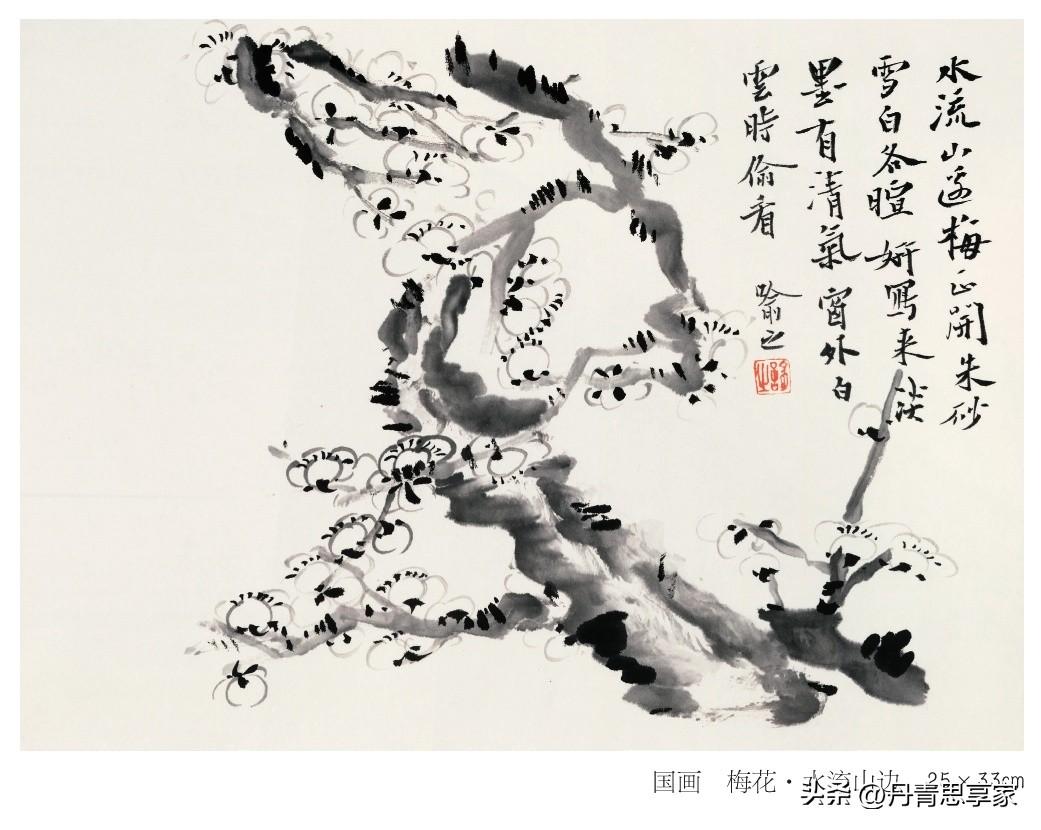 水流山邊梅正開朱砂
雪白各暄妍寫来淡
墨有清氣窗外白
雲時偷看 喻之
国画 梅花·水流山边 25×33cm
头条 @丹青思享家